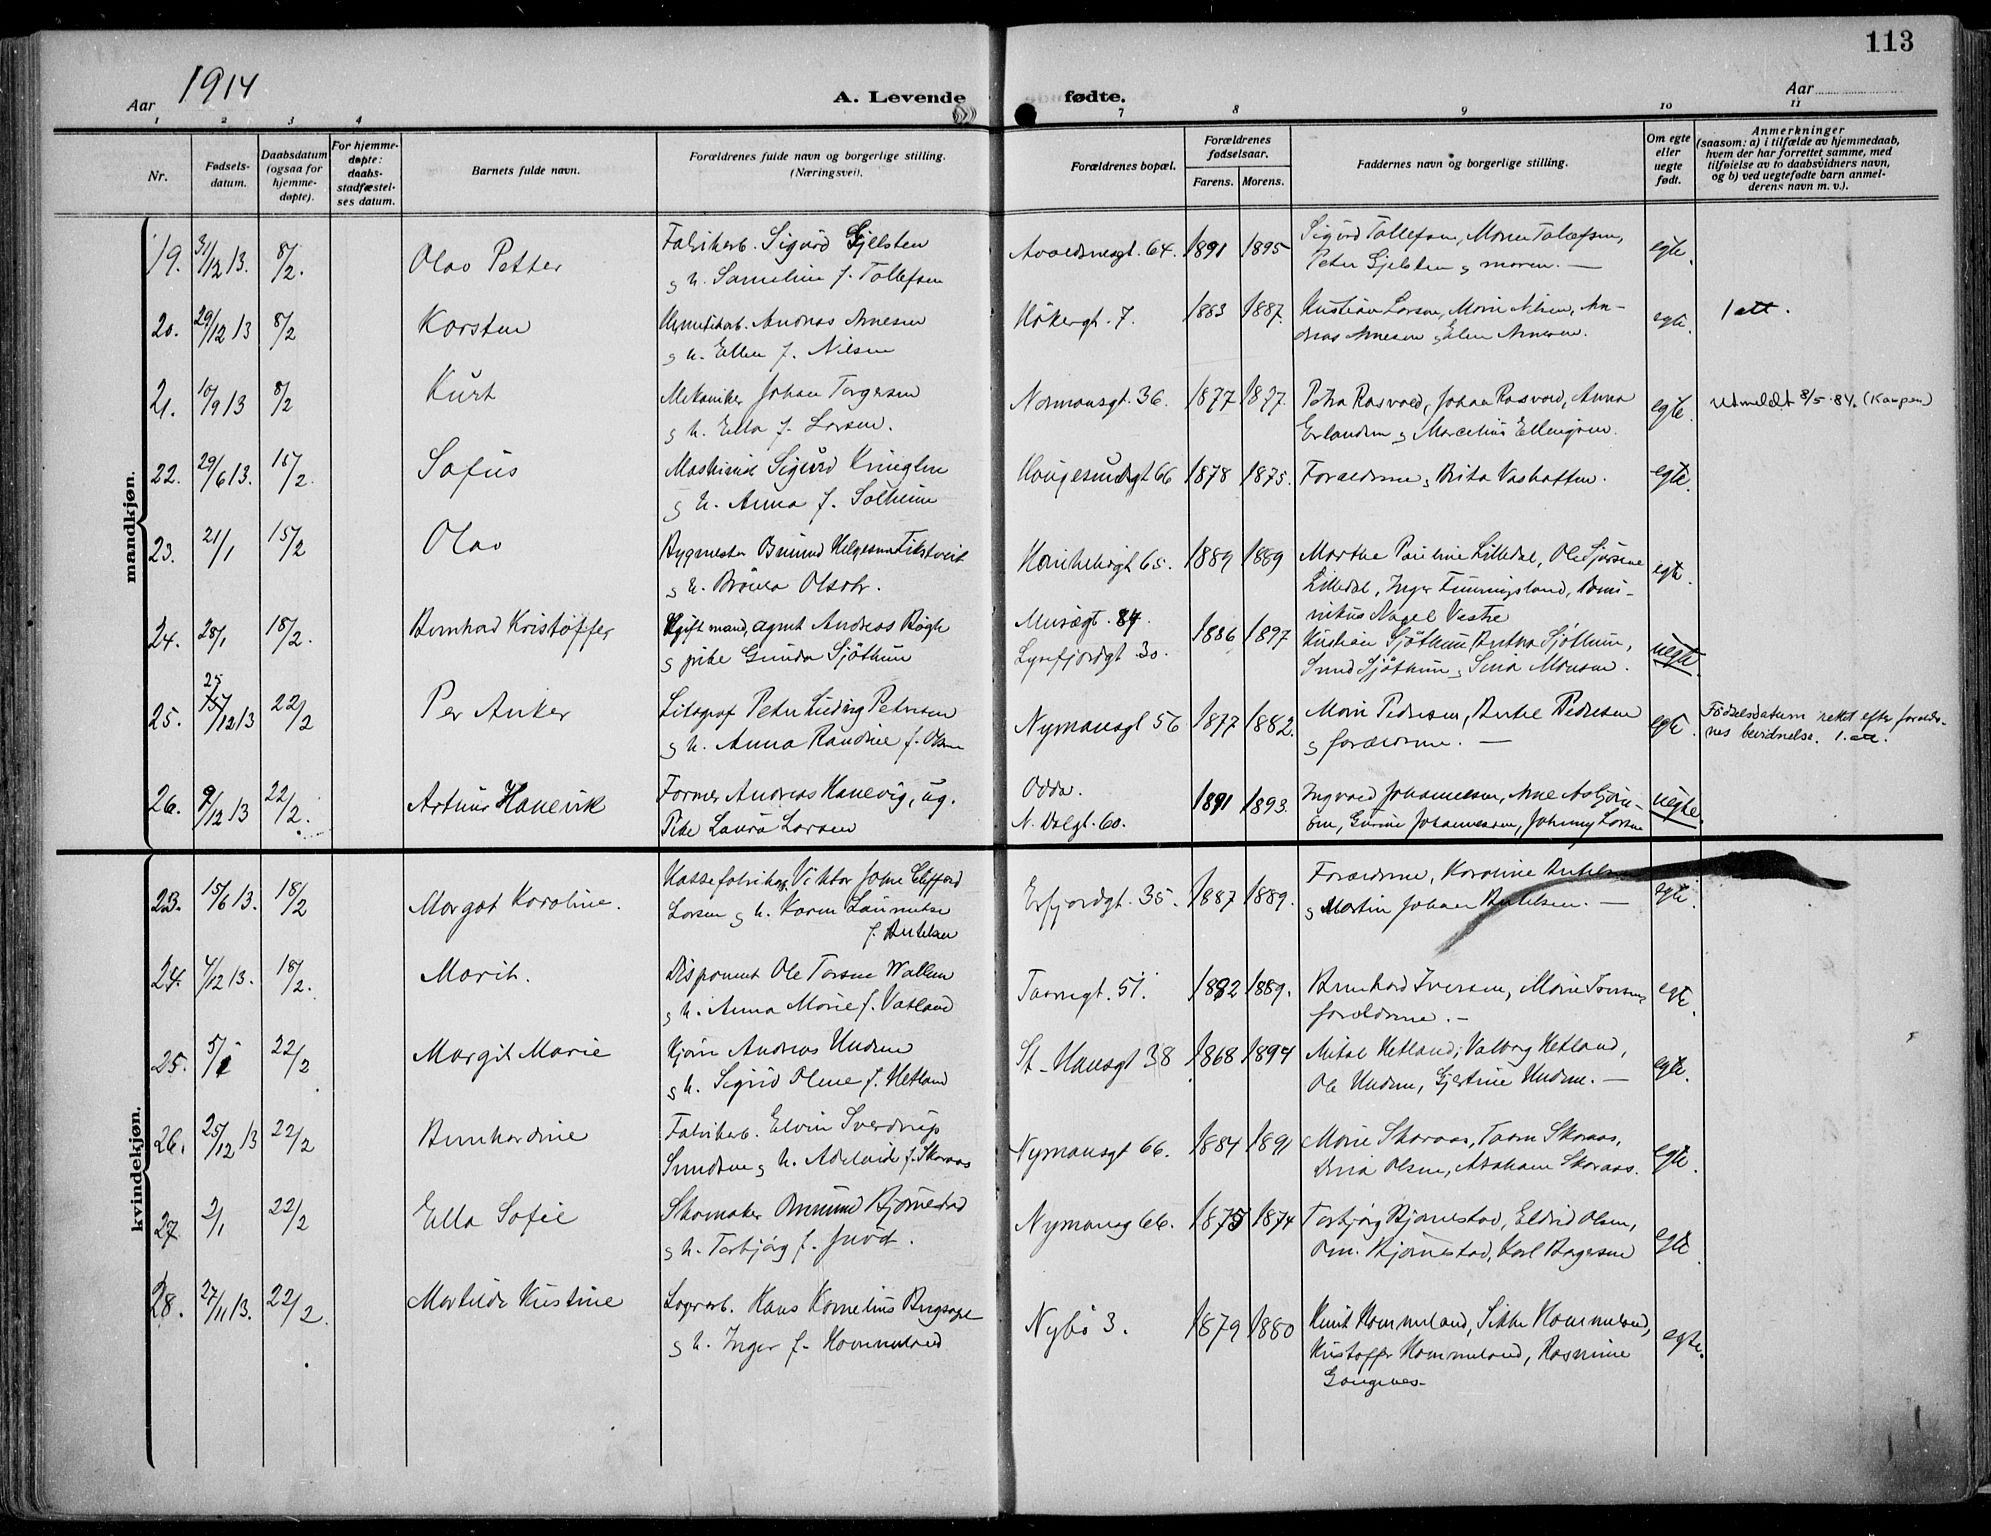 113
Aar 1914
A. Levende fødte.
Aar
1 2 3 4 7 8 9 10 11
Nr.
Fødsels-
datum.
Daabsdatum
(ogsaa for
hjemme-
døpte).
For hjemme-
døpte:
daabs-
stadfæstel-
ses datum.
Barnets fulde navn.
Forældrenes fulde navn og borgerlige stilling.
(Næringsvei).
Forældrenes bopæl.
Forældrenes
fødselsaar.
Farens. Morens.
Faddernes navn og borgerlige stilling.
Om egte
eller
uegte
født.
Anmerkninger
(saasom: a) i tilfælde av hjemmedaab,
hvem der har forrettet samme, med
tilføielse av to daabsvidners navn,
og b) ved uegtefødte barn anmel-
derens navn m. v.).
mandkjøn.
19. 31/12 13. 8/2. Olav Petter Fabrikarb. Sigurd Gjelsten Avaldsnesgt. 64. 1891 1895 Sigurd Tollefsen, Marie Tollefsen, egte.
og h. Sameline f. Tollefsen Peter Gjelsten og moren. —
20. 29/12 13 8/2 Karsten Hermetikarb. Andreas Arnesen Høkergt. 7. 1883 1887. Kristian Larsen, Marie Nilsen, An- egte. 1 att.
og h. Ellen f. Nilsen dreas Arnesen og Elen Arnesen.
21. 10/9 13 8/2 Kurt Mekaniker Johan Torgersen Normansgt. 36. 1877 1877. Petra Rasvold, Johan Rasvold, Anna egte. Utmeldt 8/5-84. (Kampen)
og h. Ella f. Larsen. Erlandsen og Marcelius Ellengren.
22. 29/6 13. 15/2. Sofus Maskinist Sigurd Kringlen Haugesundsgt 66 1878 1875. Forældrene og Brita Vashatten. egte.
og h. Anna f. Solheim
23. 21/1 15/2 Olav Bygmester Helgesen Tikstveit 65. 1889 1889 Marthe Pauline Lilledal, Ole egte.
og h. Olsdtr. Lilledal, Inger Tunningsland, Domi-
nikus Nagel Vestre
24. 28/1 18/2. Bernhard Kristoffer gift mand, agent Andreas Bøgh Musègt. 84. 1886 1897 Kristian Sjøthun, Sjøthun, uegte.
og pike Gunda Sjøthun Lysefjordgt 30. Sjøthun, Monsen.
25. 25/12 13 22/2 Per Anker Litograf Peter Ludvig Petersen Nymansgt 56 1877 1882. Marie Pedersen, Pedersen egte. Fødselsdatum rettet efter foreldre-
og h. Anna Randine f. Olsen og forældrene. — nes bevidnelse. 1. att.
26. 9/12 13 22/2. Artur Hanevik Former Andreas Hanevig, ug. Odda. 1891 1893. Ingvald Johannessen, Arne Asbjørn- uegte.
Pike Laura Larsen N. Dalgt. 60. sen, Gurine Johannessen, Johnny Larsen
kvindekjøn.
23. 15/6 13. 18/2 Margot Karoline. Kassefabrikarb. Viktor John Clifford Erfjordgt. 35. 1887 1889. Forældrene, Karoline Bertelsen egte.
Larsen og h. Karen Lauritse og Martin Johan Bertelsen. —
f. Bertelsen
24. 4/12 13. 18/2. Marit. Disponent Ole Wallem 51. 1882 1889. Bernhard Iversen, Marie Iversen, egte.
og h. Anna Marie f. Vatland foreldrene. —
25. 5/1 22/2 Margit Marie Andreas St. Hansgt 38 1868 1894 Hetland, Valborg Hetland, egte.
og h. Sigrid Oline f. Hetland Ole Gjertine —
26. 25/12 13 22/2 Bernhardine Fabrikarb. Elvin Sverdrup Nymansgt 66. 1884 1891 Marie Skoraas, Skoraas, egte.
og h. Adelaide f. Skoraas Olsen, Abraham Skoraas.
27. 2/1 22/2 Ella Sofie Skomaker Omund Bjørnestad Nymansg 66. 1875 1874 Torbjørg Bjørnestad, Eldrid Olsen, egte
og h. Torbjørg f. Om. Bjørnestad, Karl
28. 27/11 13. 22/2. Martilde Kristine Lagerarb. Hans Kornelius Nybø 3. 1879 1880 Knut Hommeland, Sikke Hommeland, egte.
og h. Inger f. Hommeland Kristoffer Hommeland, Rasmine